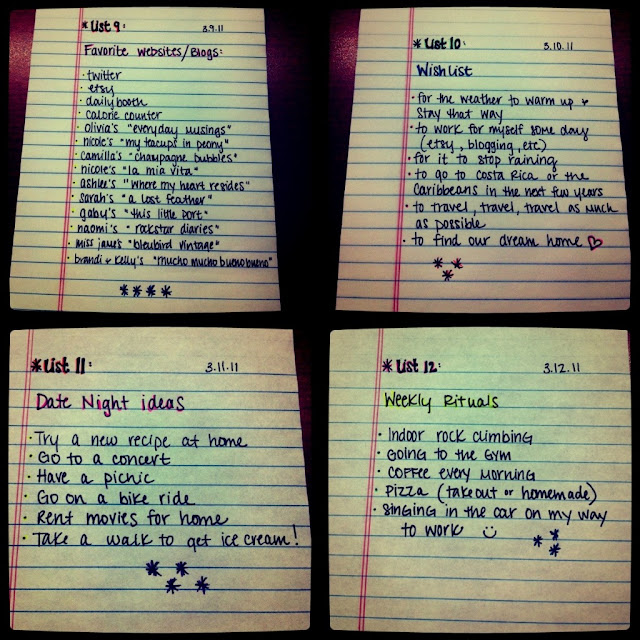 *List 9: 3.9.11
Favorite websites/Blogs:
· twitter
· etsy
· dailybooth
· calorie counter
· Olivia's "everyday musings"
· nicole's "my teacups in peony"
· camilla's "champagne bubbles"
· nicole's "la mia vita"
· ashlee's "where my heart resides"
· sarah's "a lost feather"
· gaby's "this little port"
· naomi's "rockstar diaries"
· miss jame's "bleubird vintage"
· brandi & kelly's "mucho mucho bueno bueno"
****
*List 10: 3.10.11
Wish List
· for the weather to warm up &
stay that way
· to work for myself some day
(etsy, blogging, etc)
· for it to stop raining
· to go to Costa Rica or the
Caribbeans in the next few years
· to travel, travel, travel as much
as possible
· to find our dream home ♡
* *
*
*List 11: 3.11.11
Date Night ideas
· Try a new recipe at home
· Go to a concert
· Have a picnic
· Go on a bike ride
· Rent movies for home
· Take a walk to get ice cream!
* *
* *
*List 12: 3.12.11
Weekly Rituals
· Indoor rock climbing
· Going to the gym
· Coffee every morning
· Pizza (takeout or homemade)
· Singing in the car on my way
to work ☺
* *
*